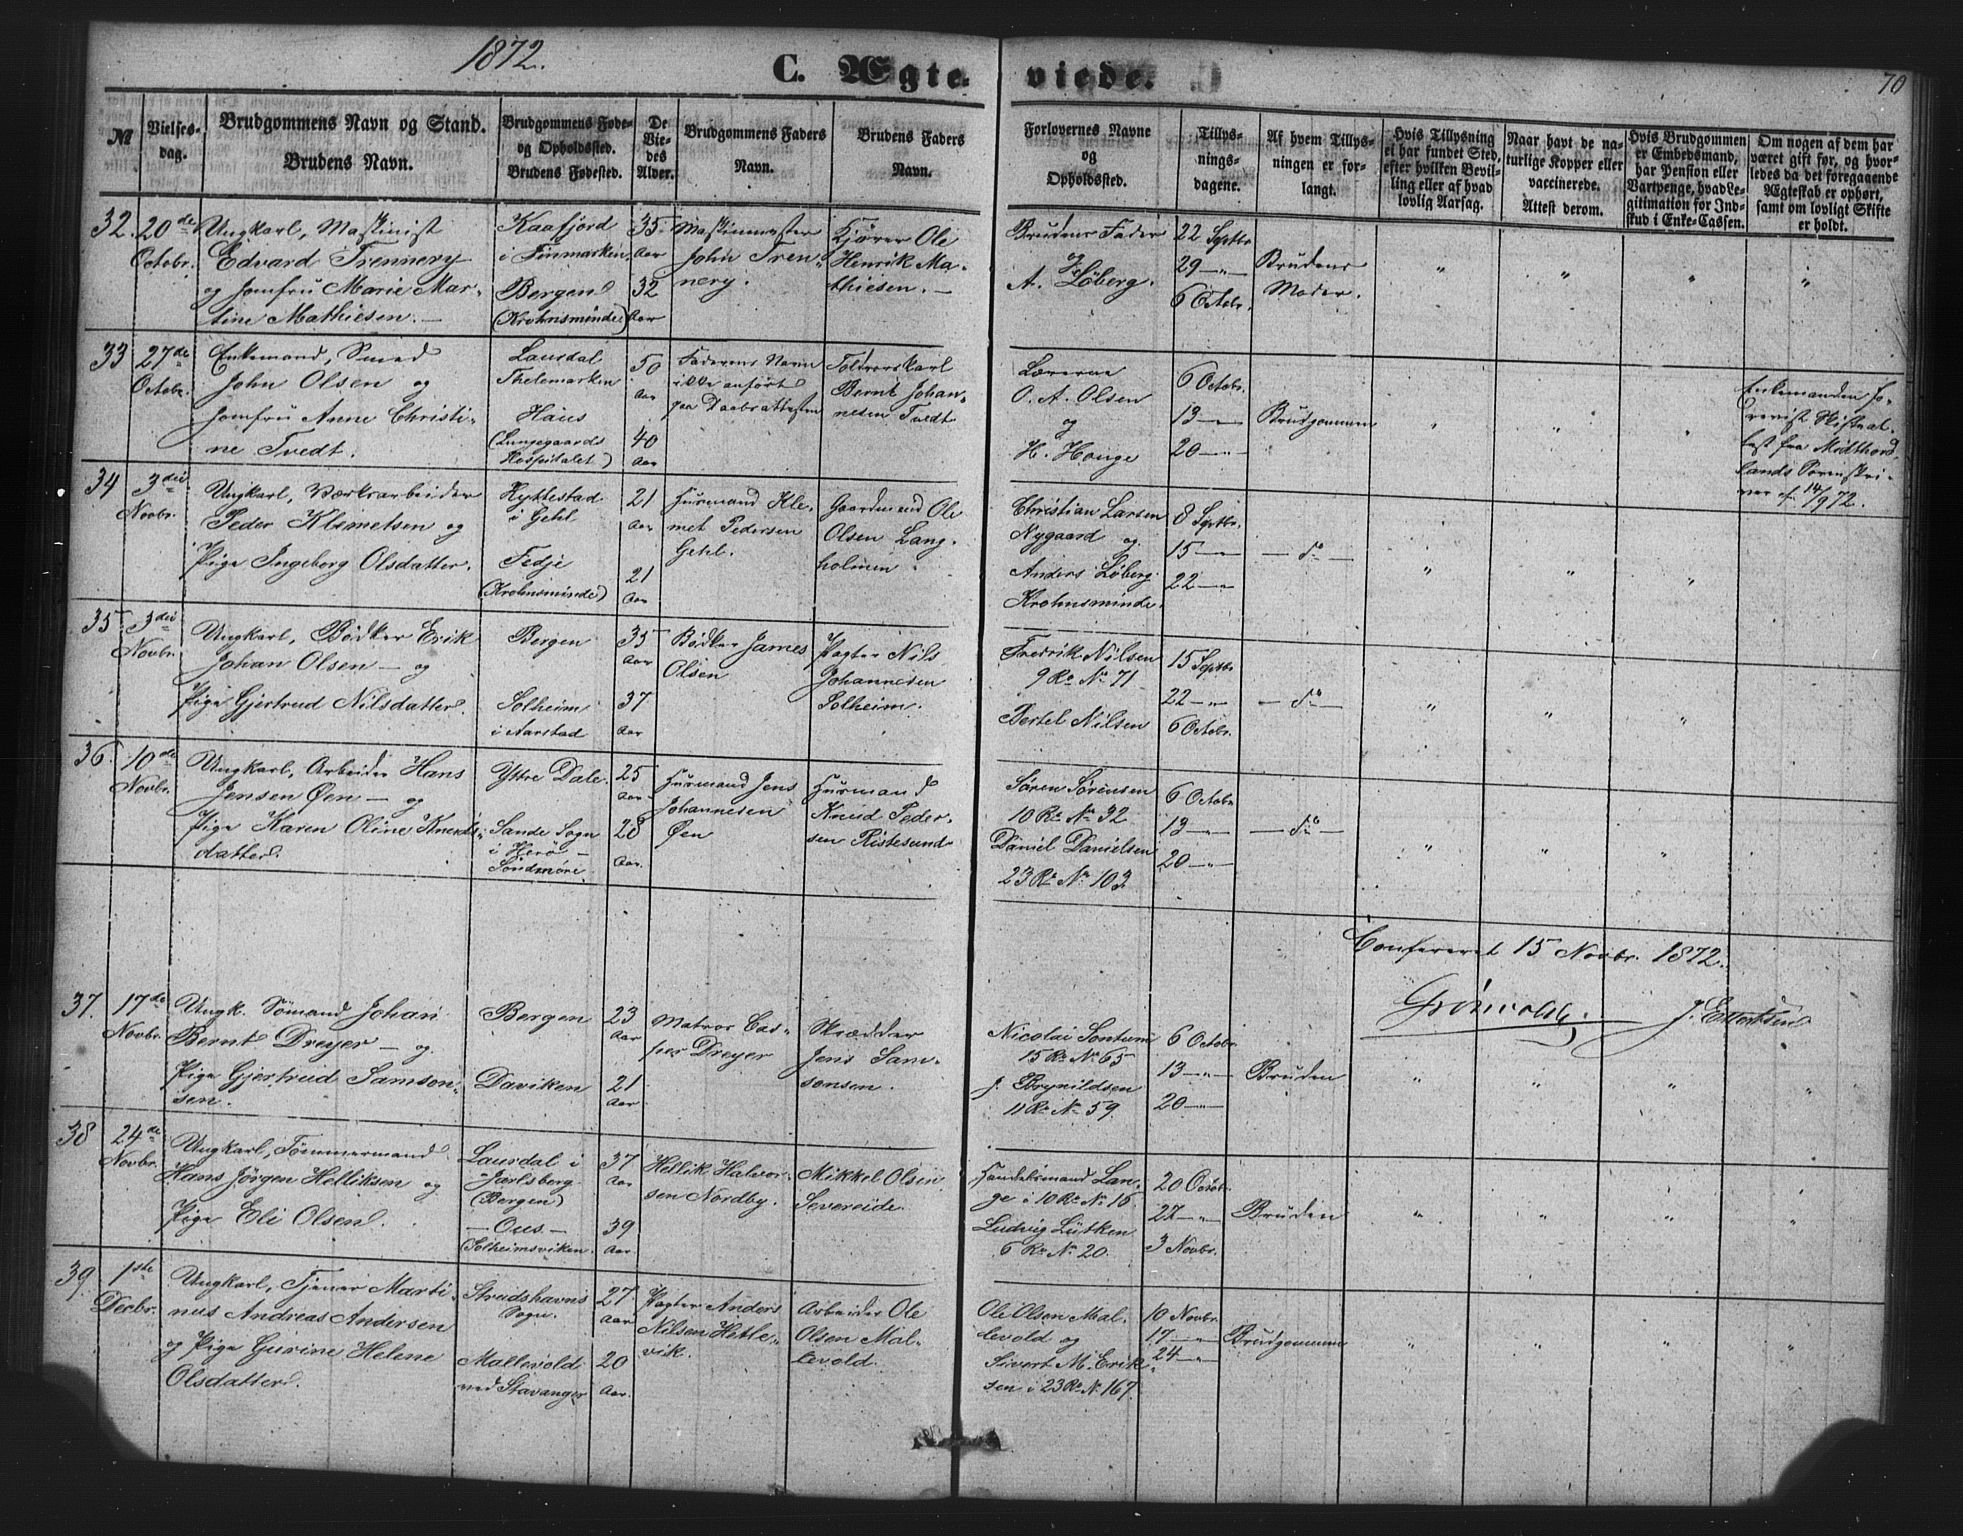 1872.
C. Ægteviede.
70
№
Vielsesdag.
Brudgommens Navn og Stand.
Brudens Navn.
Brudgommens Føde-
og Opholdssted.
Brudens Fødested.
De
Vie-
des
Alder.
Brudgommens Faders
Navn.
Brudens Faders
Navn.
Forlovernes Navne
og
Opholdssted.
Tillys-
nings-
dagene.
Af hvem Tillys-
ningen er for-
langt.
Hvis Tillysning
ei har fundet Sted,
efter hvilken Bevil-
ling eller af hvad
lovlig Aarsag.
Naar havt de na-
turlige Kopper eller
vaccinerede.
Attest derom.
Hvis Brudgommen
er Embedsmand,
har Pension eller
Vartpenge, hvad Le-
gitimation for Ind-
skud i Enke-Cassen.
Om nogen af dem har
været gift før, og hvor-
ledes da det foregaaende
Ægteskab er ophørt,
samt om lovligt Skifte
er holdt.
32. 20de Octobr.
Ungkarl, Maskinist
Edvard Trennery
og Jomfru Marie Mar-
tine Mathiesen. —
Kaafjord
i Finmarken
Bergen
(Krohnsminde)
35 Aar
32 Aar
Maskinmester
John Tren-
nery.
Kjører Ole
Henrik Ma-
thiesen. —
Brudens Fader
A. Løberg.
22 Septbr.
29 — " —
6 Octobr.
Brudens
Moder.
" " " "
33 27de Octobr.
Enkemand, Smed
John Olsen og
Jomfru Anne Christi-
ne Tvedt.
Laurdal
Thelemarken
Haus
(Lungegaards
Hospitalet)
50 Aar
40 Aar
Faderens Navn
ikke anført
paa Daabsattesten
Toldrorskarl
Bernt Johan-
nesen Tvedt
Lærerne
O. A. Olsen
og
H. Houge
6 Octobr.
13 — " —
20 — " —
Brudgommen
" " "
Enkemanden fo-
revist Skifteat-
test fra Midthord-
lands Sorenskri-
ver af 14/9 72.
34 3die Novbr.
Ungkarl, Værksarbeider
Peder Klemetsen og
Pige Ingeborg Olsdatter.
Hyllestad
i Gehl
Fedje
(Krohnsminde)
21 Aar
21 Aar
Huusmand Kle-
met Pedersen
Gehl.
Gaardmand Ole
Olsen Lang-
holmen.
Christian Larsen
Nygaard og
Anders Løberg
Krohnsminde.
8 Septbr.
15 — " —
22 — " —
— do —
" " "
35 3die Novbr.
Ungkarl, Bødker Erik
Johan Olsen — og
Pige Gjertrud Nilsdatter.
Bergen
Solheim
i Aarstad
35 Aar
37 Aar
Bødker James
Olsen
Pagter Nils
Johannesen
Solheim.
Fredrik Nilsen
9 Ro No 71
Bertel Nilsen
15 Septbr
22 — " —
6 Octobr.
— do —
" " "
36. 10de Novbr.
Ungkarl, Arbeider Hans
Jensen Øen — og
Pige Karen Oline Knuds-
datter.
Ytre Dale.
Sande Sogn
i Herø —
Søndmøre.
25 Aar
28 Aar.
Huusmand Jens
Johannesen
Øen
Huusmand
Knud Peder-
sen Ristesund
Søren Sørensen
10 Ro No 32
Daniel Danielsen
23 Ro No 103
6 Octobr
13 — " —
20 — " —
— do —
" " "
Confereret 15 Novbr. 1872.
37. 17de Novbr.
Ungk. Sømand Johan
Bernt Dreyer — og
Pige Gjertrud Samson-
sen.
Bergen
Daviken
23 Aar
21 Aar
Matros Cas-
per Dreyer
Skrædder
Jens Sam-
sonsen.
Nicolai Sontum
15 Ro No 65
J. Brynildsen
11 Ro No 59.
6 Octobr.
13 — " —
20 — " —
Bruden
" " " "
38 24de Novbr.
Ungkarl, Tømmermand
Hans Jörgen Helliksen og
Pige Eli Olsen.
Laurdal i
Jarlsberg
(Bergen)
— Ous —
(Solheimsviken.
37 Aar
39 Aar.
Hellik Halvor-
sen Nordby.
Mikkel Olsen
Severeide.
Handelsmand Lan-
ge i 10 Ro No 16
Ludvig Lütken
6 Ro No 20.
20 Octobr.
27 — " —
3 Novbr.
Bruden
" " " "
39. 1ste Decbr.
Ungkarl, Tjener Marti-
nus Andreas Andersen
og Pige Gurine Helene
Olsdatter.
Strudshavns
Sogn.
Mallevold
ved Stavanger
27 Aar
20 Aar.
Pagter Anders
Nilsen Hetle-
vik.
Arbeider Ole
Olsen Mal-
levold.
Ole Olsen Mal-
levold og
Sivert M. Erik-
sen i 23 Ro No 167.
10 Novbr.
17 — " —
24 — " —
Brudgommen
" " " "